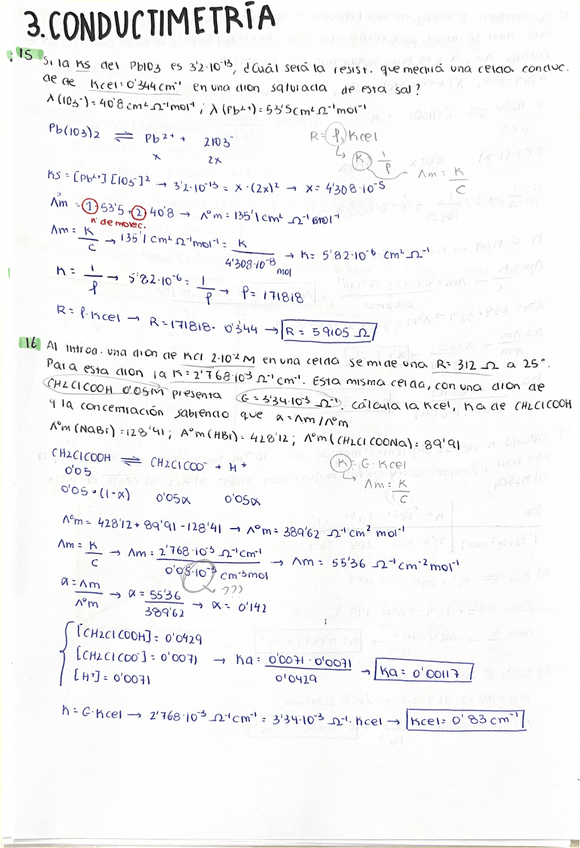 3. CONDUCTIMETRÍA
15
Si la KS del PbIO3 es 3'2·10⁻¹³, ¿Cuál será la resist. que medirá una celda conduc.
de de Kcel=0'344cm⁻¹ en una dion saturada de esta sal?
λ(IO3⁻)=40'8cm²Ω⁻¹mol⁻¹; λ(Pb²⁺)=53'5cm²Ω⁻¹mol⁻¹
Pb(IO3)2 ⇌ Pb²⁺ + 2IO3⁻
x 2x
R=ρ·Kcel
K=1/ρ
Λm=K/C
KS=[Pb²⁺][IO3⁻]² → 3'2·10⁻¹³=x·(2x)² → x=4'308·10⁻⁵
Λ°m=①53'5+②40'8 → Λ°m=135'1cm²Ω⁻¹mol⁻¹
nº de molec.
Λm=K/C → 135'1cm²Ω⁻¹mol⁻¹=K/4'308·10⁻⁸mol → K=5'82·10⁻⁶cm²Ω⁻¹
K=1/ρ → 5'82·10⁻⁶=1/ρ → ρ=171818
R=ρ·Kcel → R=171818·0'344 → R=59105Ω
16
Al introd. una dion de KCl 2·10⁻²M en una celda se mide una R=312Ω a 25°.
Para esta dion la K=2'768·10⁻³Ω⁻¹cm⁻¹. Esta misma celda, con una dion de
CH2ClCOOH 0'05M presenta G=3'34·10⁻³Ω⁻¹. Calcula la Kcel, Ka de CH2ClCOOH
y la concentración sabiendo que α=Λm/Λ°m
Λ°m(NaBr)=128'41; Λ°m(HBr)=428'12; Λ°m(CH2ClCOONa)=89'91
CH2ClCOOH ⇌ CH2ClCOO⁻ + H⁺
0'05
0'05·(1-α) 0'05α 0'05α
K=G·Kcel
Λm=K/C
Λ°m=428'12+89'91-128'41 → Λ°m=389'62Ω⁻¹cm²mol⁻¹
Λm=K/C → Λm=2'768·10⁻³Ω⁻¹cm⁻¹/0'05·10⁻³cm⁻³mol → Λm=55'36Ω⁻¹cm⁻²mol⁻¹
???
α=Λm/Λ°m → α=55'36/389'62 → α=0'142
[CH2ClCOOH]=0'0429
[CH2ClCOO⁻]=0'0071 → Ka=0'0071·0'0071/0'0429 → Ka=0'00117
[H⁺]=0'0071
K=G·Kcel → 2'768·10⁻³Ω⁻¹cm⁻¹=3'34·10⁻³Ω⁻¹·Kcel → Kcel=0'83cm⁻¹